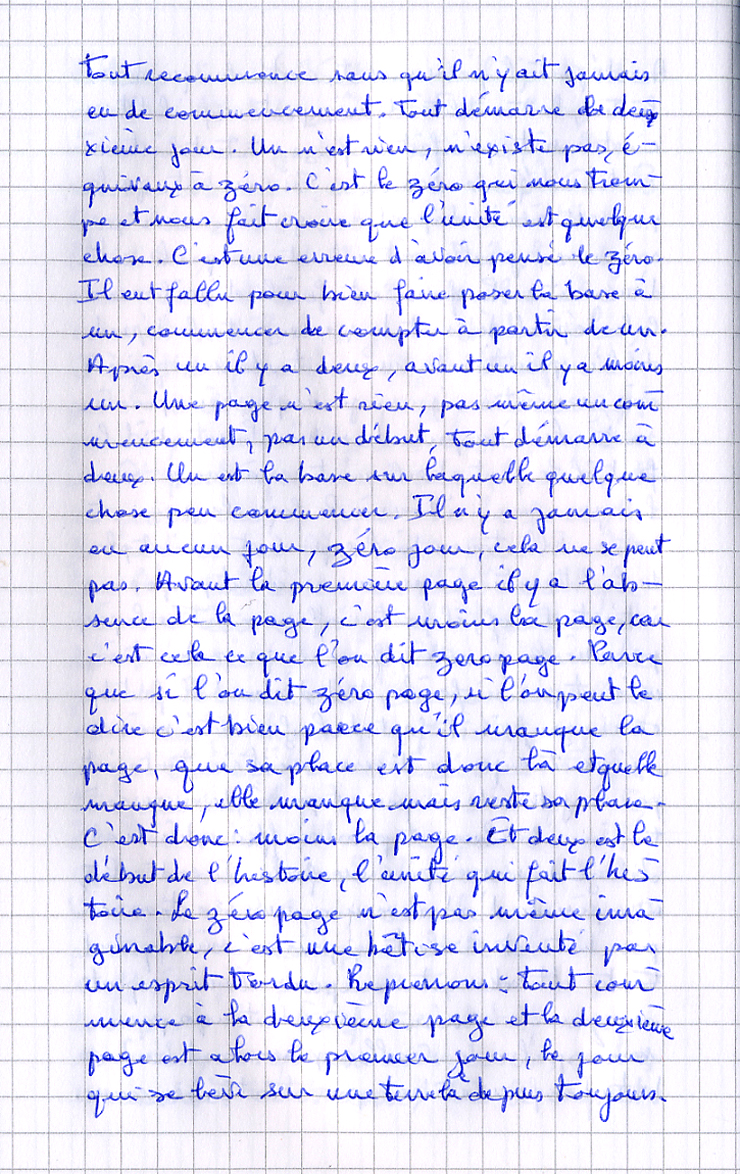 Tout recommence sans qu'il n'y ait jamais
eu de commencement. Tout démarre le deu
xième jour. Un n'est rien, n'existe pas, é-
quivaux à zéro. C'est le zéro qui nous trom
pe et nous fait croire que l'unité est quelque
chose. C'est une erreur d'avoir pensé le zéro.
Il eut fallu pour bien faire poser la base à
un, commencer de compter à partir de un.
Après un il y a deux, avant un il y a moins
un. Une page n'est rien, pas même un com
mencement, pas un début, tout démarre à
deux. Un est la base sur laquelle quelque
chose peu commencer. Il n'y a jamais
eu aucun jour, zéro jour, cela ne se peut
pas. Avant la première page il y a l'ab-
sence de la page, c'est moins la page, car
c'est cela ce que l'on dit zero page. Parce
que si l'on dit zéro page, si l'on peut le
dire c'est bien parce qu'il manque la
page, que sa place est donc là et qu'elle
manque, elle manque mais reste sa place.
C'est donc : moins la page. Et deux est le
début de l'histoire, l'unité qui fait l'his
toire. Le zéro page n'est pas même ima
ginable, c'est une bêtise inventé par
un esprit tordu. Reprenons : tout com
mence à la deuxième page et la deuxième
page est alors le premier jour, le jour
qui se lève sur une terre là depuis toujours.